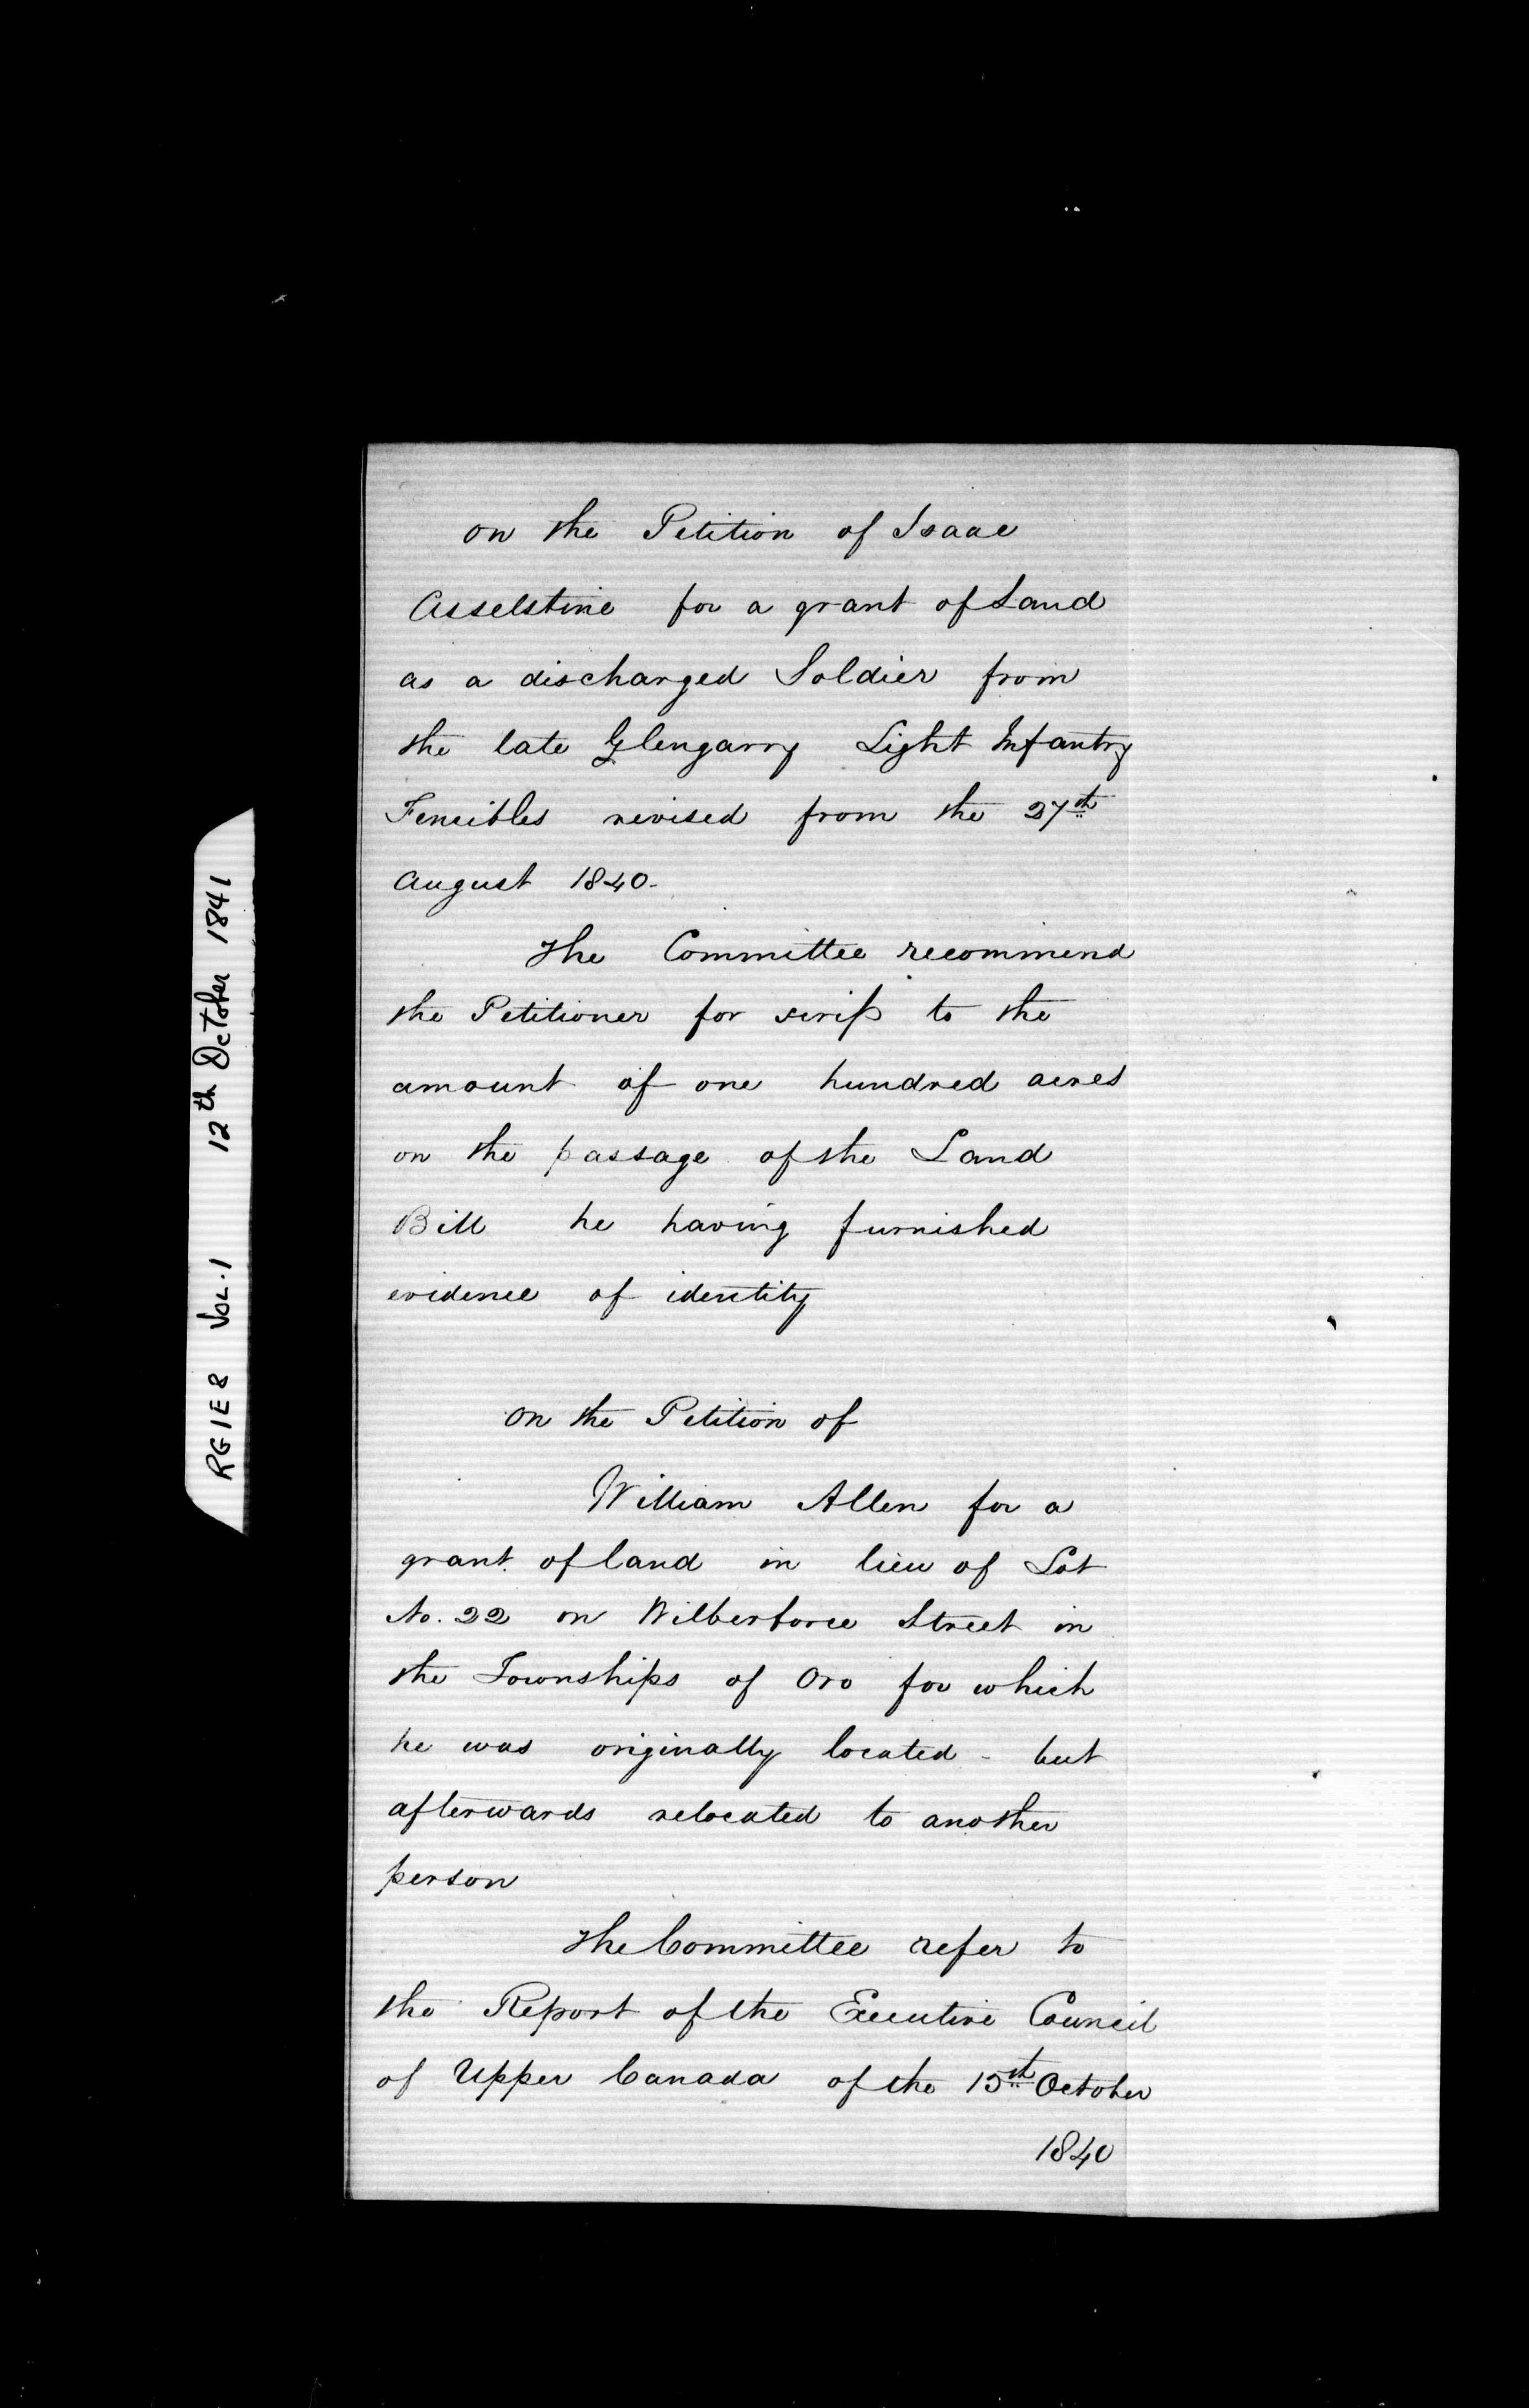 on the Petition of Isaac
Asselstine for a grant of Land
as a discharged Soldier from
the late Glengarry Light Infantry
Fencibles revised from the 27th
August 1840-
The Committee recommend
the Petitioner for scrip to the
amount of one hundred acres
on the passage of the Land
Bill he having furnished
evidence of identity
On the Petition of
William Allen for a
grant of land in lieu of Lot
No. 22 on Wilberforce Street in
the Townships of Oro for which
he was originally located - but
afterwards relocated to another
person
The Committee refer to
the Report of the Executive Council
of Upper Canada of the 15th October
1840
RG1E8 VOL.1 12th October 1841